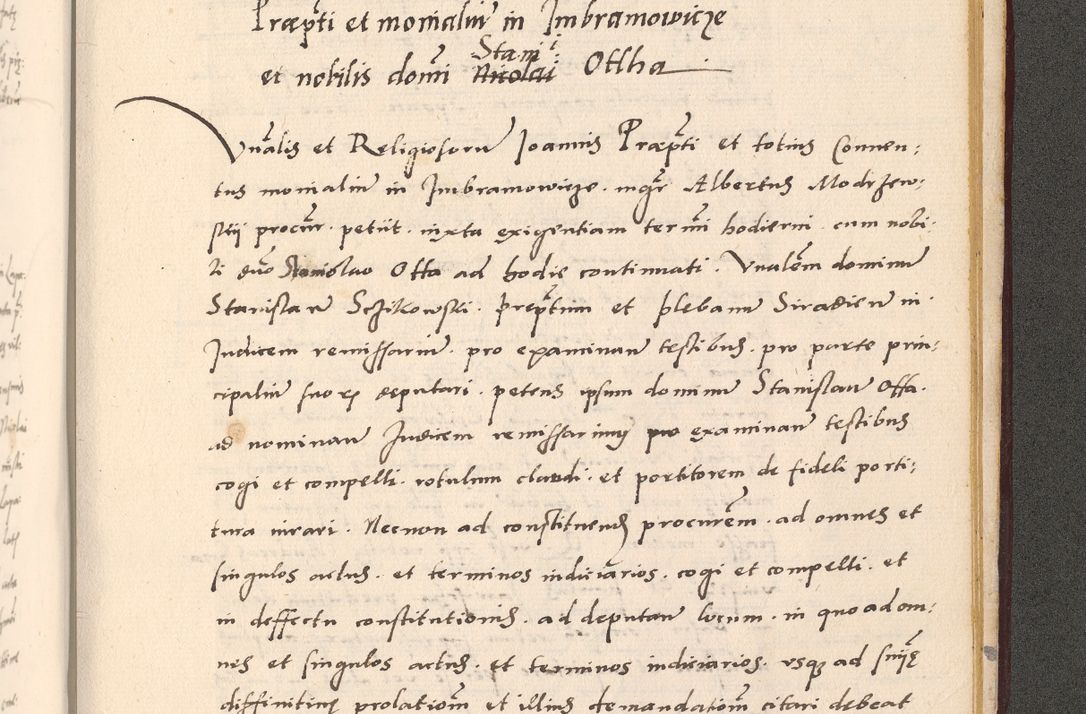 Præpti et monialiū in Imbramowicze
Stani
et nobilis domi Nicolai Ottha
Vnālis et Religiosoru Joannis Præpti et totius Conuen:
tus monialiu in Imbramowicze. mgr Albertus Modrzew:
skii procur. petiit. iuxta exigentiam termi hodierni. cum nobi:
li duo Stanislao Otta ad hodie continuati. Vnalem dominu
Stanislau Sczikowski. præptum et plebanu Siradien in.
Judicem remissariu. pro examinan testibus. pro parte prin:
cipaliu suorꝝ deputari. petens ipsum dominu Stanislau Offa.
ad nominan Judicem remissarium pro examinan testibus
cogi et compelli. rotulum claudi. et portitorem de fideli porti:
tura iurari. Necnon ad constituend procurem. ad omnes et
singulos actus. et terminos iudiciarios. cogi et compelli. et
in deffectu constitutionis. ad deputan locum. in quo ad om:
nes et singulos actus. et terminos iudiciarios. vsqȝ ad
diffinitiuę prolationem et illius demandationem citari debeat